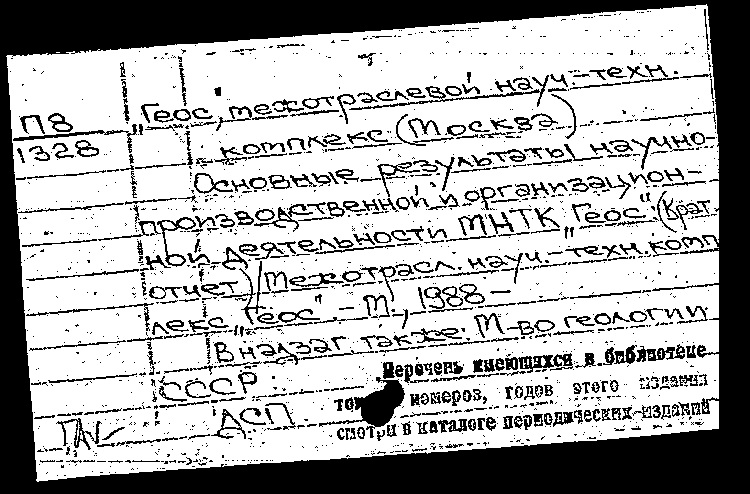 П8
1328
„Геос", межотраслевой науч.-техн.
комплекс (Москва)
Основные результаты научно-
производственной и организацион-
ной деятельности МНТК „Геос". (Крат.
отчет) / Межотрасл. науч.-техн. комп
лекс „Геос". - М., 1988 -
В надзаг. также: М-во геологии
СССР.
ДСП
Перечень имеющихся в библиотеке
номеров, годов этого издания
смотри в каталоге периодических изданий